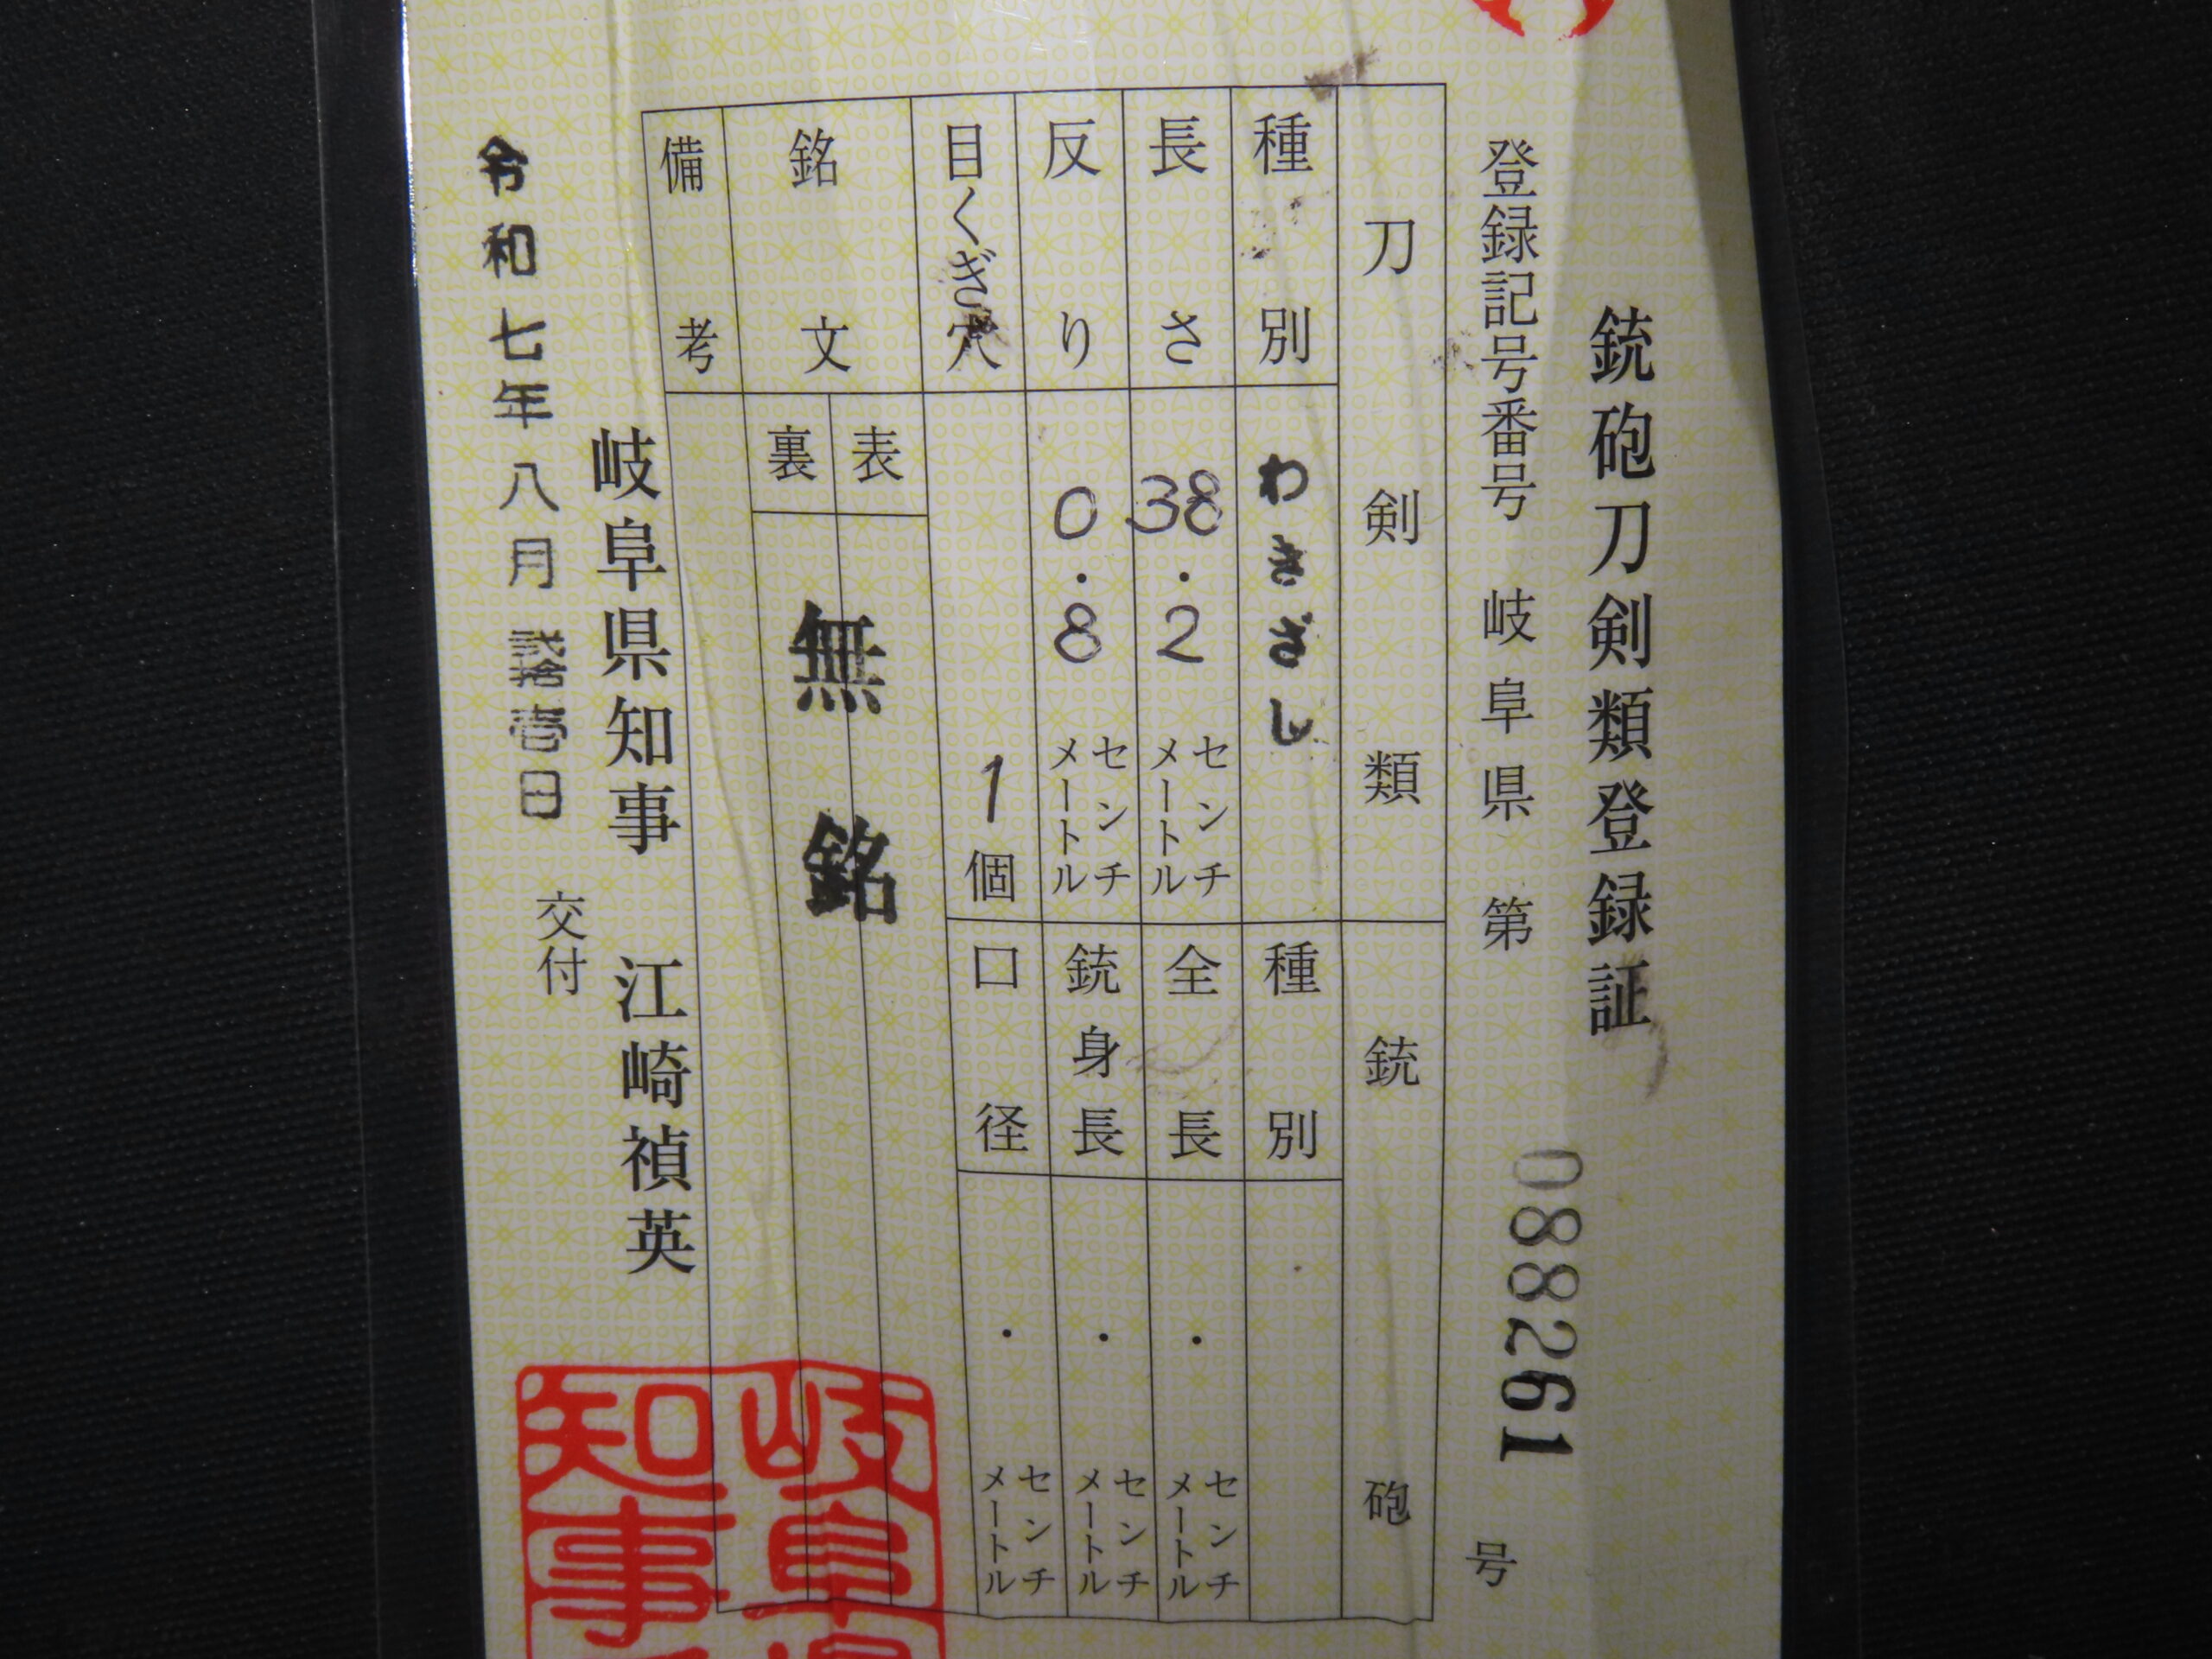 銃砲刀剣類登録証
登録記号番号 岐阜県 第 088261 号
刀剣類
種別 わきざし
長さ 38.2 センチメートル
反り 0.8 センチメートル
目くぎ穴 1個
銘文 表 裏 無銘
備考
銃砲
種別
全長 . センチメートル
銃身長 . センチメートル
口径 . センチメートル
岐阜県知事 江崎禎英
令和七年八月弐拾壱日 交付
岐阜県
知事